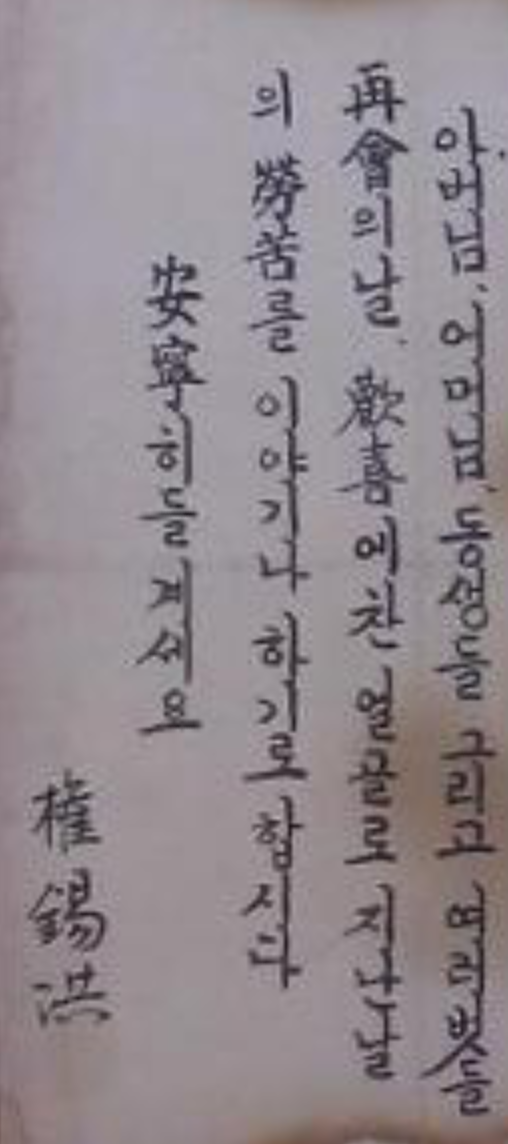 아버님, 어머님, 동생들 그리고 여러벗들
再會의날, 歡喜에찬 얼골로 지난날
의 勞苦를 이야기나 하기로 합시다
安寧히들 계세요
權錫洪